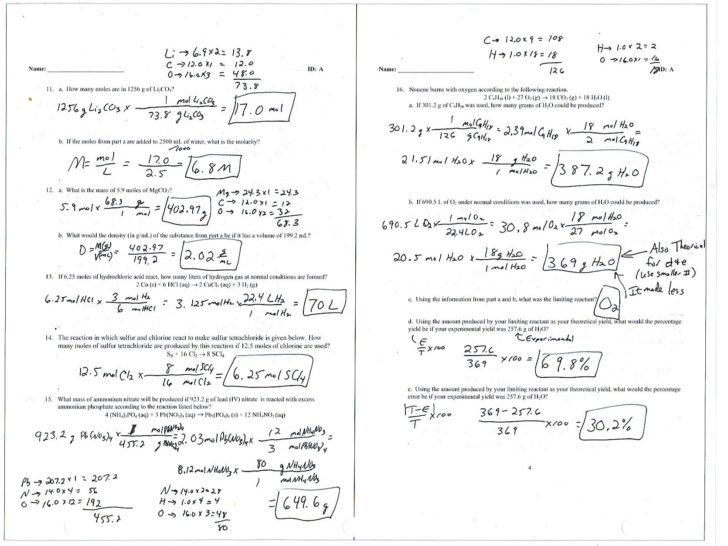 Li → 6.9 x 2 = 13.8
C → 12.0 x 1 = 12.0
O → 16.0 x 3 = 48.0
73.8
Name: ID: A
11. a. How many moles are in 1256 g of Li₂CO₃?
1256 g Li₂CO₃ x 1 mol Li₂CO₃ / 73.8 g Li₂CO₃ = 17.0 mol
b. If the moles from part a are added to 2500 mL of water, what is the molarity?
M = mol / L = 17.0 / 2.5 = 6.8 M
12. a. What is the mass of 5.9 moles of MgCO₃?
Mg → 24.3 x 1 = 24.3
C → 12.0 x 1 = 12
O → 16.0 x 2 = 32
68.3
5.9 mol x 68.3 g / 1 mol = 402.97 g
b. What would the density (in g/mL) of the substance from part a be if it has a volume of 199.2 mL?
D = M(g) / V(mL) = 402.97 / 199.2 = 2.02 g / mL
13. If 6.25 moles of hydrochloric acid react, how many liters of hydrogen gas at normal conditions are formed?
2 Cu (s) + 6 HCl (aq) → 2 CuCl₃ (aq) + 3 H₂ (g)
6.25 mol HCl x 3 mol H₂ / 6 mol HCl = 3.125 mol H₂ x 22.4 L H₂ / 1 mol H₂ = 70 L
14. The reaction in which sulfur and chlorine react to make sulfur tetrachloride is given below. How
many moles of sulfur tetrachloride are produced by this reaction if 12.5 moles of chlorine are used?
S₈ + 16 Cl₂ → 8 SCl₄
12.5 mol Cl₂ x 8 mol SCl₄ / 16 mol Cl₂ = 6.25 mol SCl₄
15. What mass of ammonium nitrate will be produced if 923.2 g of lead (IV) nitrate is reacted with excess
ammonium phosphate according to the reaction listed below?
4 (NH₄)₃PO₄ (aq) + 3 Pb(NO₃)₄ (aq) → Pb₃(PO₄)₄ (s) + 12 NH₄NO₃ (aq)
923.2 g Pb(NO₃)₄ x 1 mol Pb(NO₃)₄ / 455.2 g Pb(NO₃)₄ = 2.03 mol Pb(NO₃)₄ x 12 mol NH₄NO₃ / 3 mol Pb(NO₃)₄ =
8.12 mol NH₄NO₃ x 80 g NH₄NO₃ / 1 mol NH₄NO₃
= 649.6 g
Pb → 207.2 x 1 = 207.2
N → 14.0 x 4 = 56
O → 16.0 x 12 = 192
455.2
N → 14.0 x 2 = 28
H → 1.0 x 4 = 4
O → 16.0 x 3 = 48
80
C → 12.0 x 9 = 108
H → 1.0 x 18 = 18
126
H → 1.0 x 2 = 2
O → 16.0 x 1 = 16
18
Name: ID: A
16. Nonene burns with oxygen according to the following reaction.
2 C₉H₁₈ (l) + 27 O₂ (g) → 18 CO₂ (g) + 18 H₂O (l)
a. If 301.2 g of C₉H₁₈ was used, how many grams of H₂O could be produced?
301.2 g x 1 mol C₉H₁₈ / 126 g C₉H₁₈ = 2.39 mol C₉H₁₈ x 18 mol H₂O / 2 mol C₉H₁₈ =
21.51 mol H₂O x 18 g H₂O / 1 mol H₂O = 387.2 g H₂O
b. If 690.5 L of O₂ under normal conditions was used, how many grams of H₂O could be produced?
690.5 L O₂ x 1 mol O₂ / 22.4 L O₂ = 30.8 mol O₂ x 18 mol H₂O / 27 mol O₂ =
20.5 mol H₂O x 18 g H₂O / 1 mol H₂O = 369 g H₂O
← Also Theorical
for d+e
(use smaller #)
It made less
c. Using the information from part a and b, what was the limiting reactant?
O₂
d. Using the amount produced by your limiting reactant as your theoretical yield, what would the percentage
yield be if your experimental yield was 257.6 g of H₂O?
Experimental
E / T x 100 257.6 / 369 x 100 = 69.8%
e. Using the amount produced by your limiting reactant as your theoretical yield, what would the percentage
error be if your experimental yield was 257.6 g of H₂O?
|T-E| / T x 100 369 - 257.6 / 369 x 100 = 30.2%
4